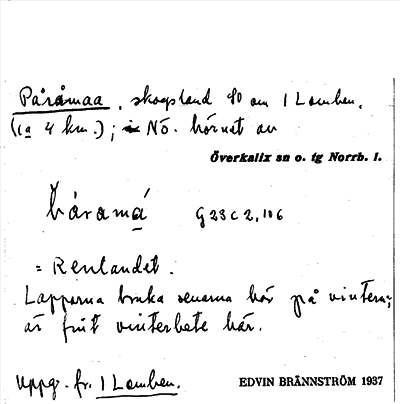 Påråmaa, skogsland SO om 1 Lomben.
(ca 4 km.); i NÖ. hörnet av
Överkalix sn o. tg Norrb. l.
båramá G 23 c 2, 106
= Renlandet.
Lapparna bruka renarna här på vintern;
är fint vinterbete här.
Uppg. fr. 1 Lomben.
EDVIN BRÄNNSTRÖM 1937